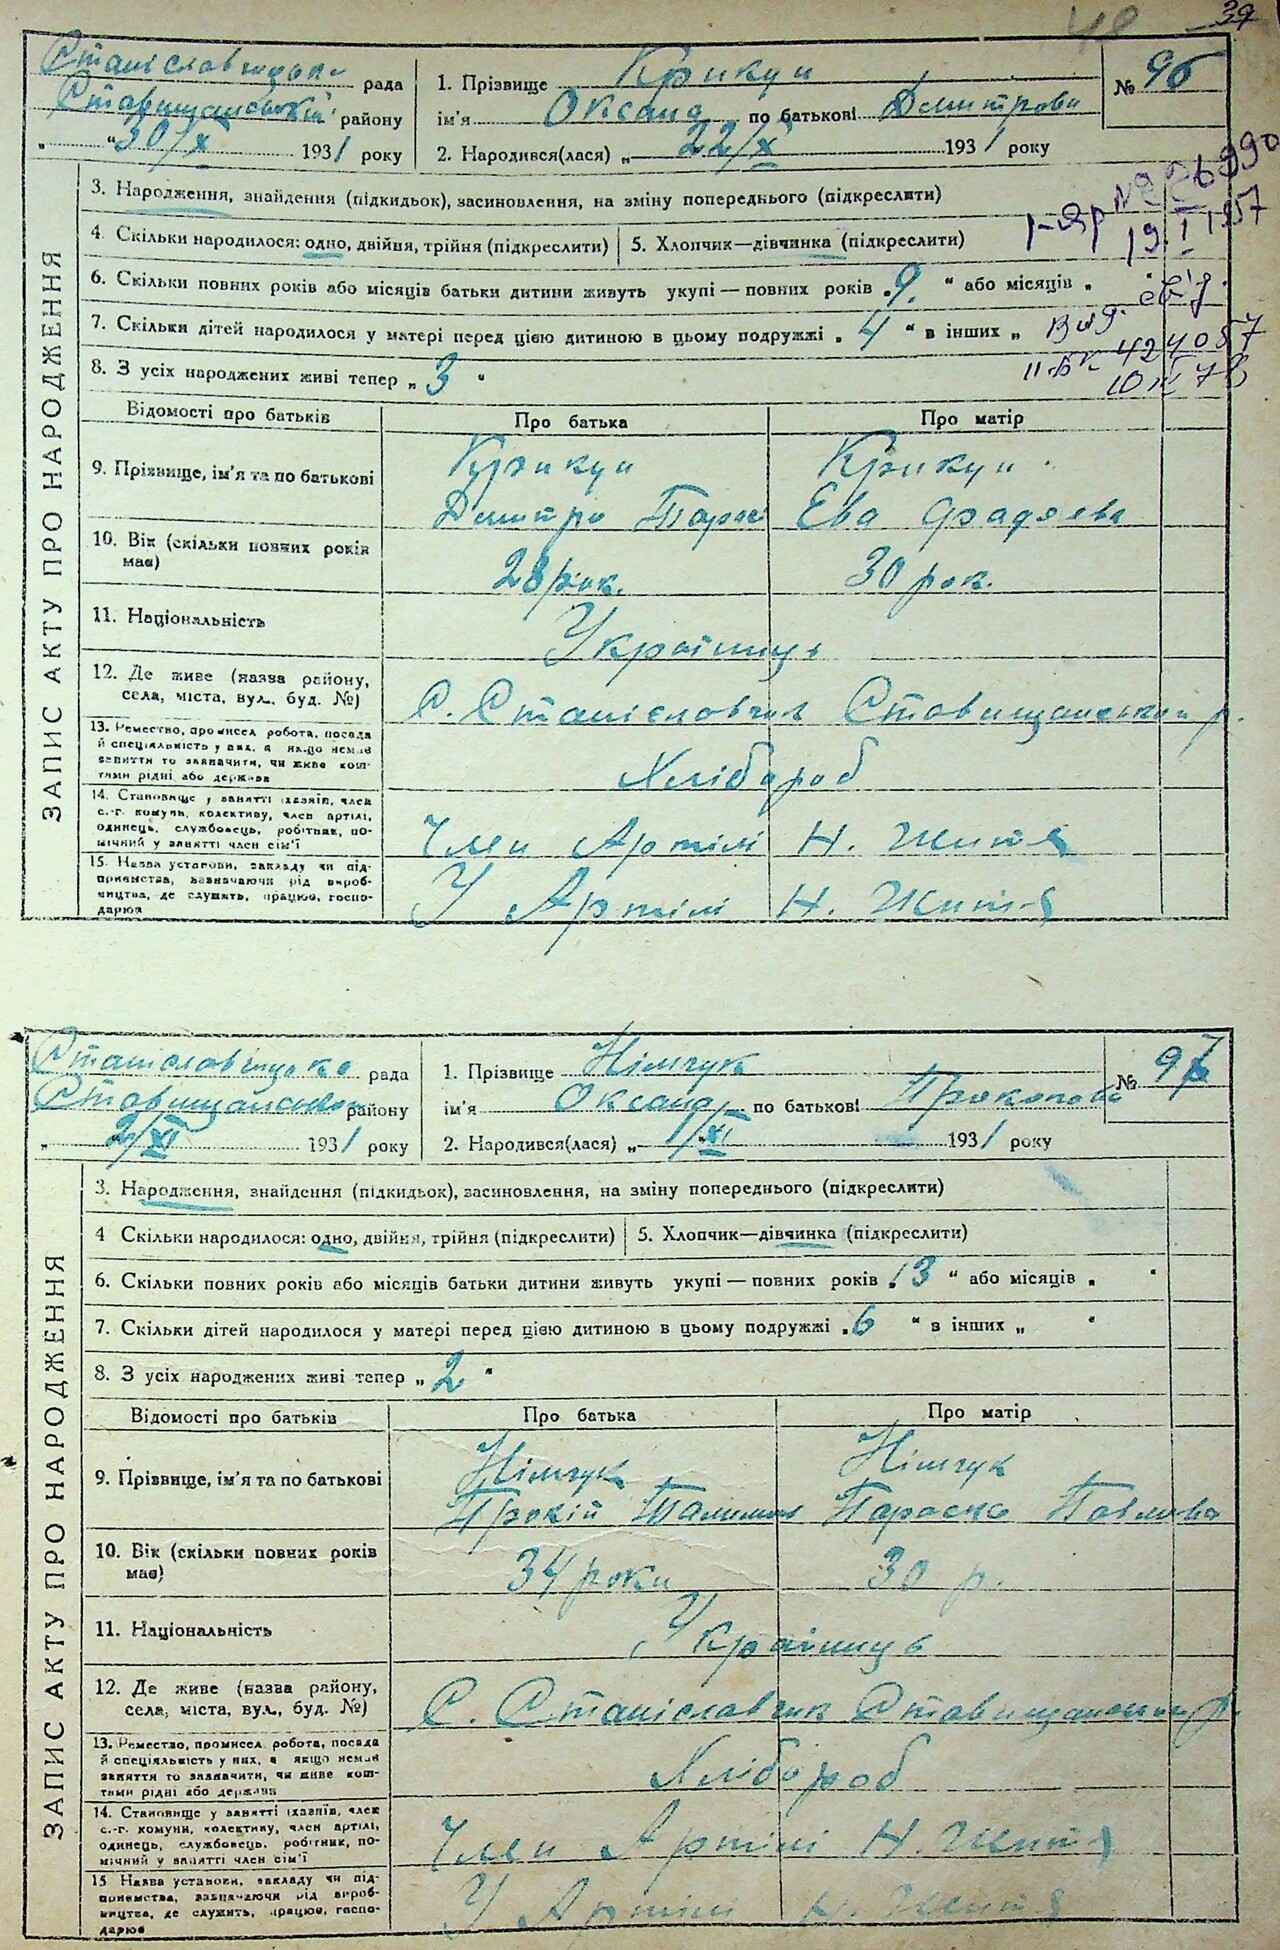 39
Станіславчицька рада
Ставищанський району
„ "30/X 1931 року
1. Прізвище Крикун
ім'я Оксана по батькові Дмитрова
2. Народився(лася) „ 22/X 1931 року
№ 96
3. Народження, знайдення (підкидьок), засиновлення, на зміну попереднього (підкреслити)
4. Скільки народилося: одно, двійня, трійня (підкреслити) 5. Хлопчик—дівчинка (підкреслити)
19 I 1957
6. Скільки повних років або місяців батьки дитини живуть укупі — повних років „9" або місяців „ "
7. Скільки дітей народилося у матері перед цією дитиною в цьому подружжі „4" в інших „
Вид. св'ід.
8. З усіх народжених живі тепер „3"
II-БК 424087
ЗАПИС АКТУ ПРО НАРОДЖЕННЯ
Відомості про батьків Про батька Про матір
9. Прізвище, ім'я та по батькові Крикун Крикун
Дмитро Тарас Ева Фадяева
10. Вік (скільки повних років має) 28 рок. 30 рок.
11. Національність Українць
12. Де живе (назва району, села, міста, вул., буд. №) С. Станіславчик Ставищанський р.
13. Ремество, промисел робота, посада й спеціяльність у них, а якщо немає заняття то зазначити, чи живе коштами рідні або держава Хлібороб
14. Становище у занятті (хазяїн, член с.-г. комуни, колективу, член артілі, одинець, службовець, робітник, помічний у занятті член сім'ї Член Артілі Н. Життя
15. Назва установи, закладу чи підприємства, зазначаючи рід виробництва, де служить, працює, господарює У Артілі Н. Життя
Станіславчицька рада
Ставищанського району
„ 2/XI 1931 року
1. Прізвище Німчук
ім'я Оксана по батькові Прокопова
2. Народився(лася) „ 1/XI 1931 року
№ 97
3. Народження, знайдення (підкидьок), засиновлення, на зміну попереднього (підкреслити)
4 Скільки народилося: одно, двійня, трійня (підкреслити) 5. Хлопчик—дівчинка (підкреслити)
6. Скільки повних років або місяців батьки дитини живуть укупі — повних років „13" або місяців „ "
7. Скільки дітей народилося у матері перед цією дитиною в цьому подружжі „6" в інших „ "
8. З усіх народжених живі тепер „2"
ЗАПИС АКТУ ПРО НАРОДЖЕННЯ
Відомості про батьків Про батька Про матір
9. Прізвище, ім'я та по батькові Німчук Німчук
Прокіп Параска Павлова
10. Вік (скільки повних років має) 34 роки 30 р.
11. Національність Українць
12. Де живе (назва району, села, міста, вул., буд. №) С. Станіславчик Ставищанський р.
13. Ремество, промисел робота, посада й спеціяльність у них, а якщо немає заняття то зазначити, чи живе коштами рідні або держави Хлібороб
14. Становище у занятті (хазяїн, член с.-г. комуни, колективу, член артілі, одинець, службовець, робітник, помічний у занятті член сім'ї Член Артілі Н. Життя
15 Назва установи, закладу чи підприємства, зазначаючи рід виробництва, де служить, працює, господарює У Артілі Н. Життя